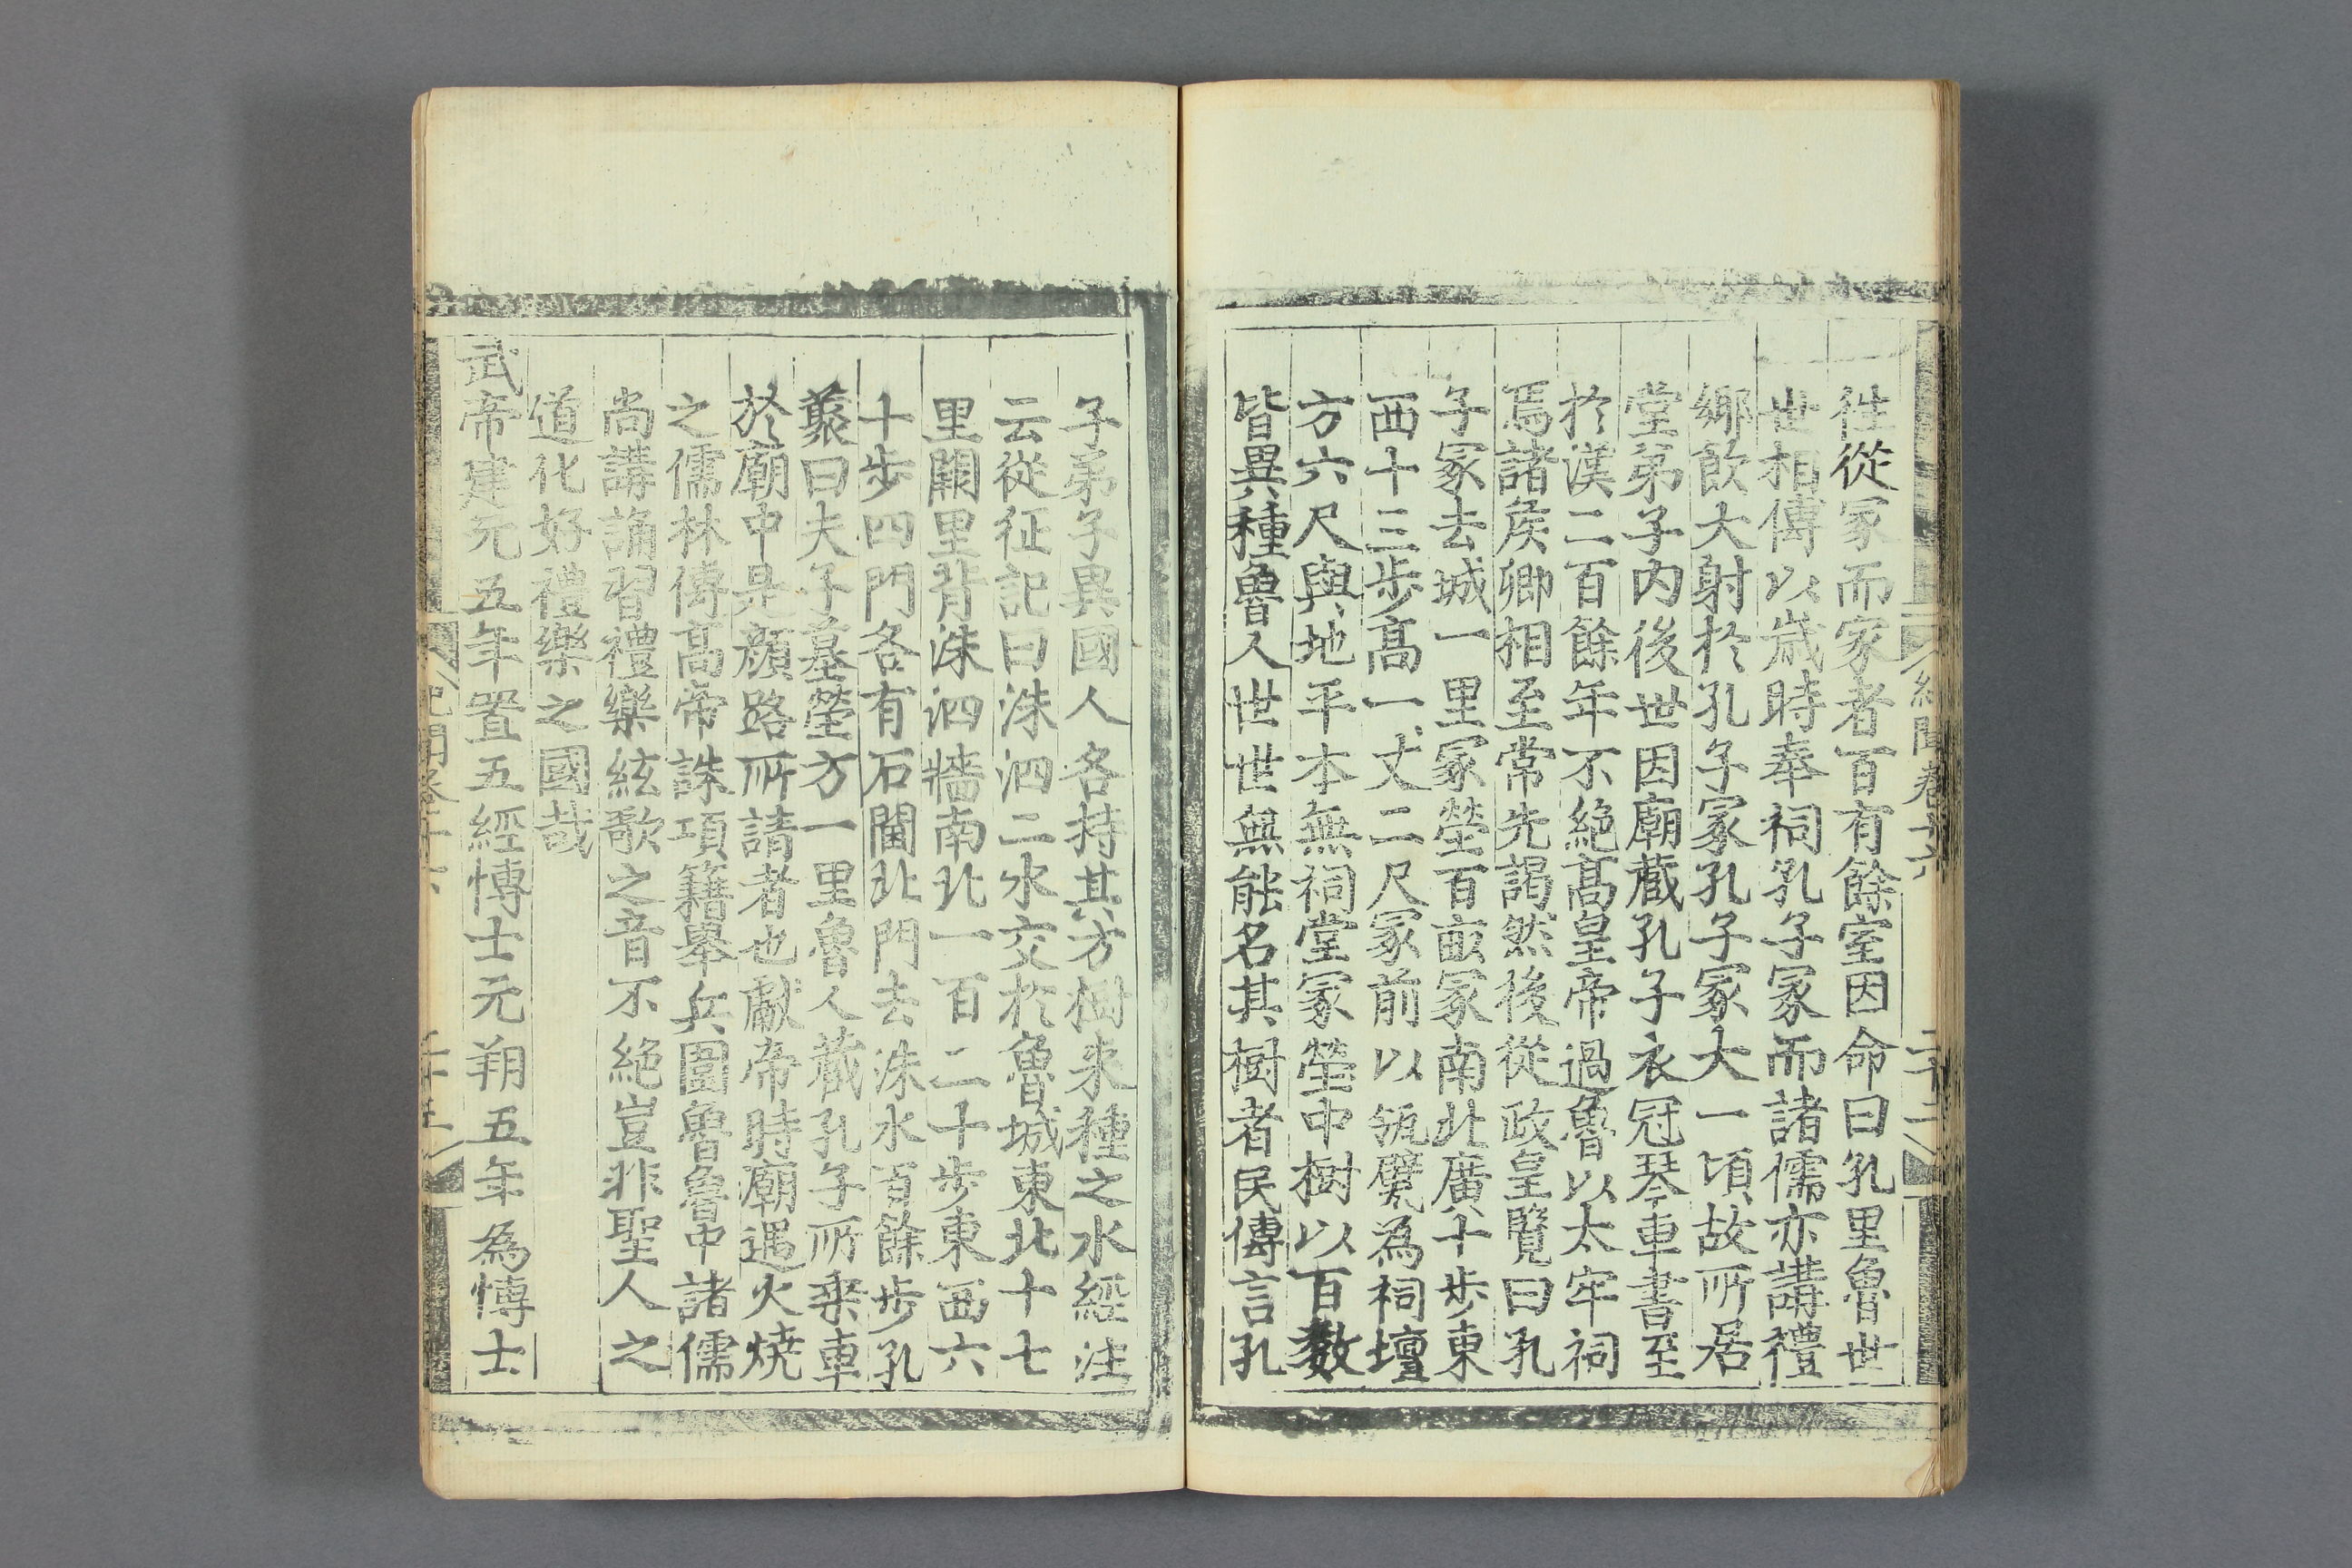 徃從冢而家者百有餘室因命曰孔里魯世
世相傳以歲時奉祠孔子冢而諸儒亦講禮
鄉飲大射於孔子冢孔子冢大一頃故所居
堂弟子内後世因廟藏孔子衣冠琴車書至
於漢二百餘年不絶髙皇帝過魯以太牢祠
焉諸矦卿相至常先謁然後從政皇覽曰孔
子冢去城一里冢塋百畝冢南北廣十步東
西十三步髙一丈二尺冢前以瓴甓為祠壇
方六尺與地平本無祠堂冢塋中樹以百數
皆異種魯人世世無能名其樹者民傳言孔
子弟子異國人各持其方樹来種之水經注
云從征記曰洙泗二水交於魯城東北十七
里闕里背洙泗牆南北一百二十步東西六
十步四門各有石閫北門去洙水百餘步孔
叢曰夫子墓塋方一里魯人藏孔子所乗車
於廟中是顔路所請者也獻帝時廟遇火燒
之儒林傳髙帝誅項籍舉兵圍魯魯中諸儒
尚講誦習禮樂絃歌之音不絶豈非聖人之
道化好禮樂之國哉
武帝建元五年置五經愽士元朔五年為愽士